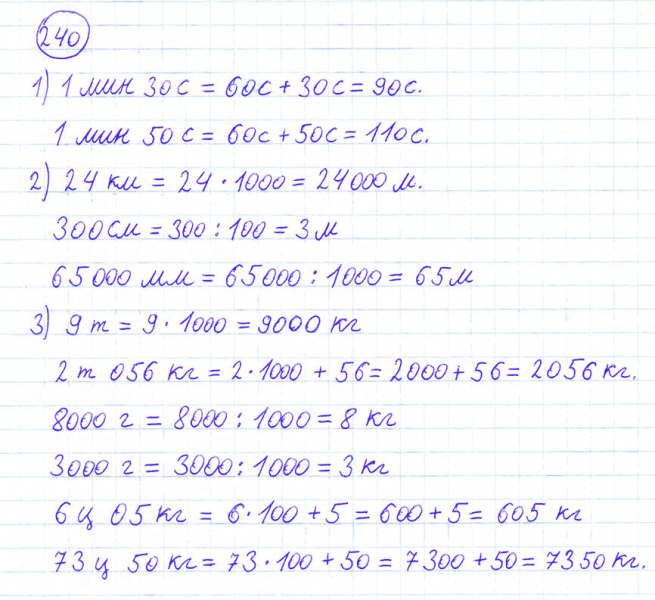 240
1) 1 мин 30 с = 60с + 30с = 90с.
1 мин 50 с = 60с + 50с = 110с.
2) 24 км = 24 · 1000 = 24000 м.
300см = 300 : 100 = 3 м
65000 мм = 65000 : 1000 = 65м
3) 9 т = 9 · 1000 = 9000 кг
2 т 056 кг = 2·1000 + 56 = 2000 + 56 = 2056 кг.
8000 г = 8000 : 1000 = 8 кг
3000 г = 3000 : 1000 = 3 кг
6 ц 05 кг = 6·100 + 5 = 600 + 5 = 605 кг
73 ц 50 кг = 73·100 + 50 = 7300 + 50 = 7350 кг.